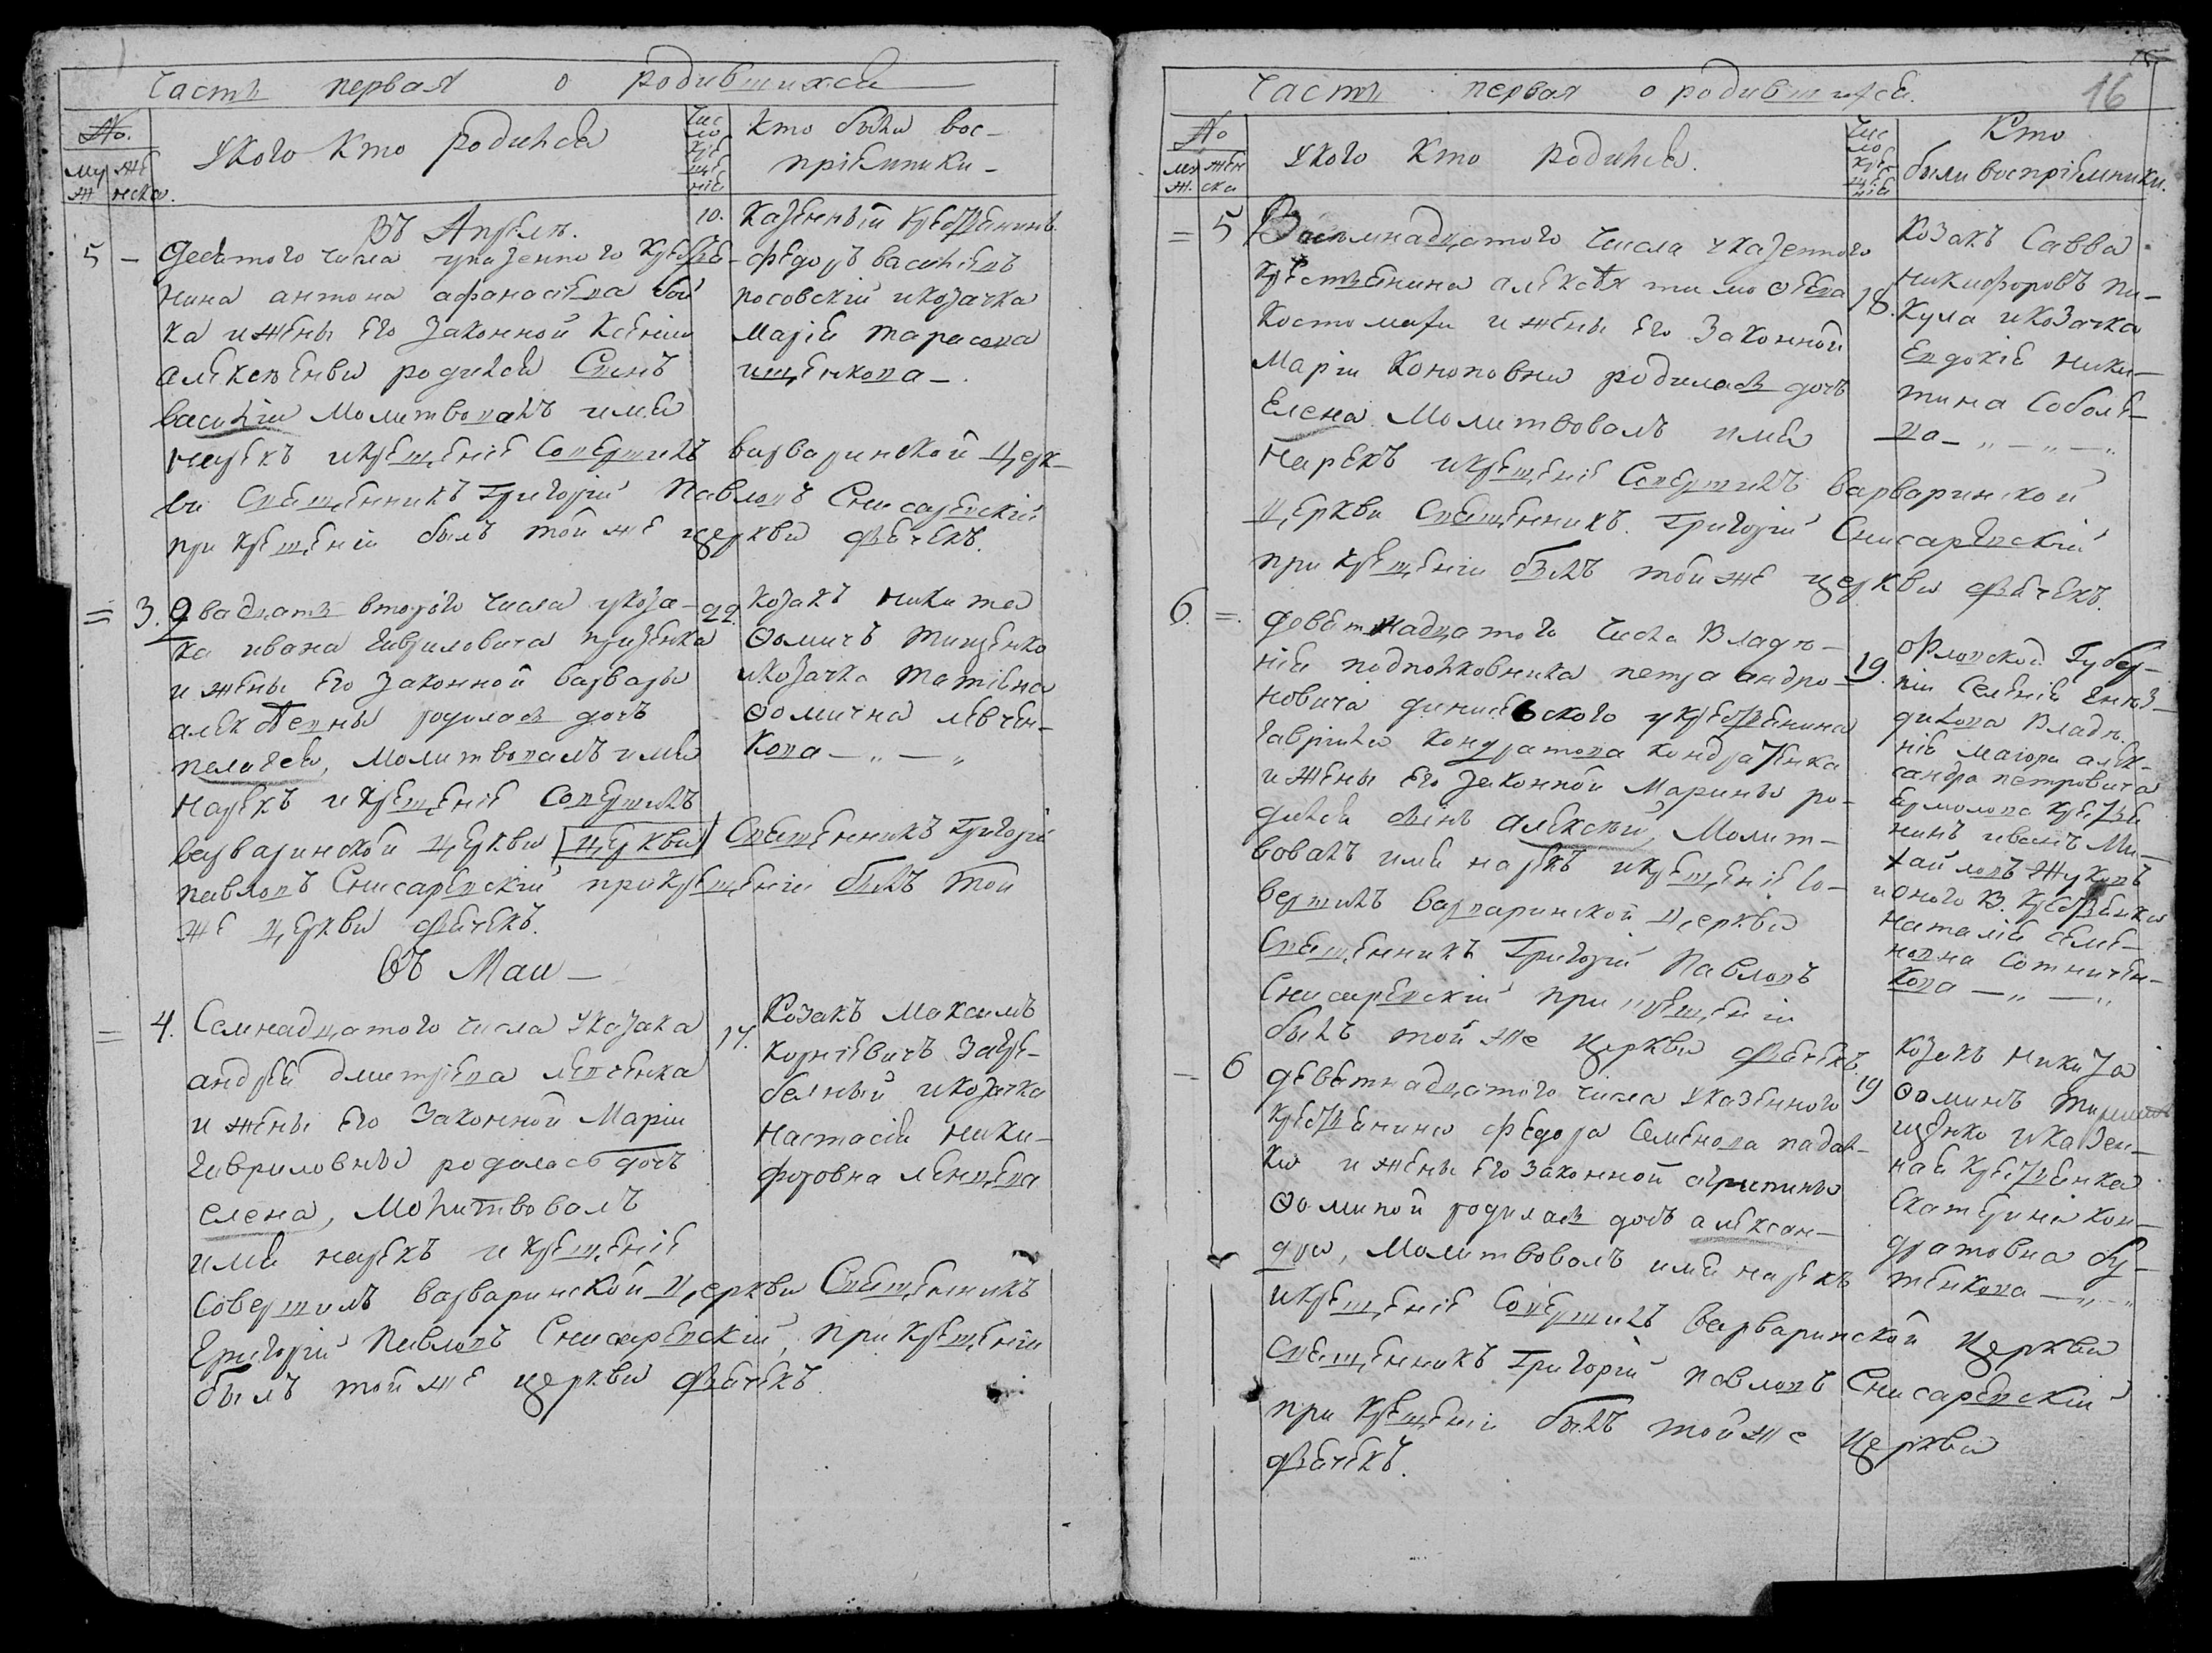 Часть первая о родившихся
No.
муж женска.
У кого кто родился
Число крещенія
Кто были вос-
пріемники -
Въ Апрелѣ.
5 - Десятого числа указенного крестья-
нина антона афанасіева бой
ка и жены его законной Ксеніи
алексѣевны родился Сынъ
василій Молитвовалъ имя
нарекъ и крещеніе совершилъ варваринской церк-
ви Священникъ Григорій Павловъ Снисаревскій
при крещеніи былъ той же церкви дьячекъ.
10. Казенный крестьянинъ
федоръ василіевъ
носовскій и козачка
Марія тарасова
ищенкова -.
= 3. Двадцать второго числа укоза-
ка ивана гавриловича
и жены его законной варвары
алексѣевны родилась дочь
пелагея, молитвовалъ имя
нарекъ и крещеніе совершилъ
варваринской церкви церкви Священникъ Григорій
павловъ Снисаревскій при крещеніи былъ той
же церкви дьячекъ.
22. козакъ никита
Ѳомичъ тищенко
и козачка татіяна
Ѳомична левчен-
кова - „ - „
Въ Маи -
= 4. Семнадцатого числа у казака
андрея дмитріева левченка
и жены его законной Маріи
гавриловны родилась дочь
елена, Молитвовалъ
имя нарекъ и крещеніе
совершилъ варваринской церкви Священникъ
Григорій Павловъ Снисаревскій, при крещеніи
былъ той же церкви дьячекъ.
17. Козакъ Максимъ
корніевичъ
и козачка
Настасія ники-
форовна
Часть первая о родившихся. 16
No
муж. женска
У кого кто родился.
Число крещенія
Кто
были воспріемники.
= 5 Восемнадцатого числа у казенного
крестьянина алексѣя тимоѳеева
Костомахи и жены его законной
Маріи Кононовны родилась дочь
Елена Молитвовалъ имя
нарекъ и крещеніе Совершилъ варваринской
церкви Священникъ. Григорій Снисаревскій
при крещеніи былъ той же церкви дьячекъ.
18. Козакъ Савва
никифоровъ пи-
кула и козачка
Евдокія ники-
тина соболе-
ва - „ - „ - „
6. =. девятнадцатого числа Владѣ-
нія подполковника петра андро-
новича у крестьянина
гавріила кондратова кондратенка
и жены его законной Марины ро-
дился сынъ алексѣй, Молит-
вовалъ имя нарекъ и крещеніе со-
вершилъ варваринской церкви
Священникъ Григорій Павловъ
Снисаревскій при крещеніи
былъ той же церкви дьячекъ.
19. орловской Губер-
ніи Селенія
Владѣ-
нія маіора алек-
сандра петровича
Ермолова крестья
нинъ иванъ Ми-
хайловъ Жуковъ
и оного В. крестьянка
наталія семе-
новна Сотничен-
кова - „ - „
- 6 девятнадцатого числа у казенного
крестьянина федора Семенова падал-
ки и жены его законной агрипины
Ѳоминой родилась дочь алексан-
дра, Молитвовалъ имя нарекъ
и крещеніе Совершилъ варваринской церкви
Священникъ Григорій павловъ Снисаревскій
при крещеніи былъ той же церкви
дьячекъ.
19 козакъ никита
Ѳоминъ
щенко и казен-
ная крестьянка
Екатерина кон-
дратовна бу-
тенкова - „ - „